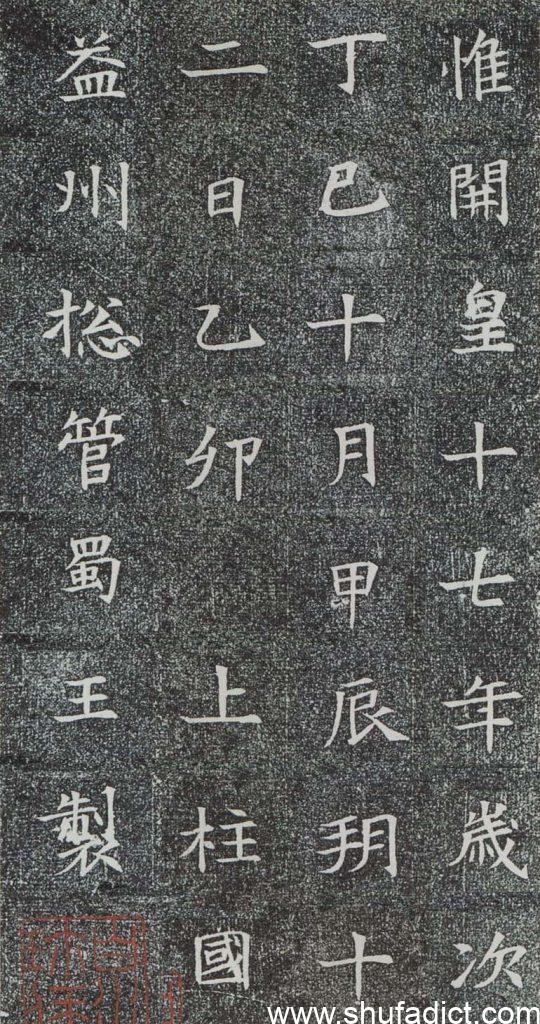 惟開皇十七年歲次
丁巳十月甲辰朔十
二日乙卯 上柱國
益州揔管蜀王製
www.shufadict.com